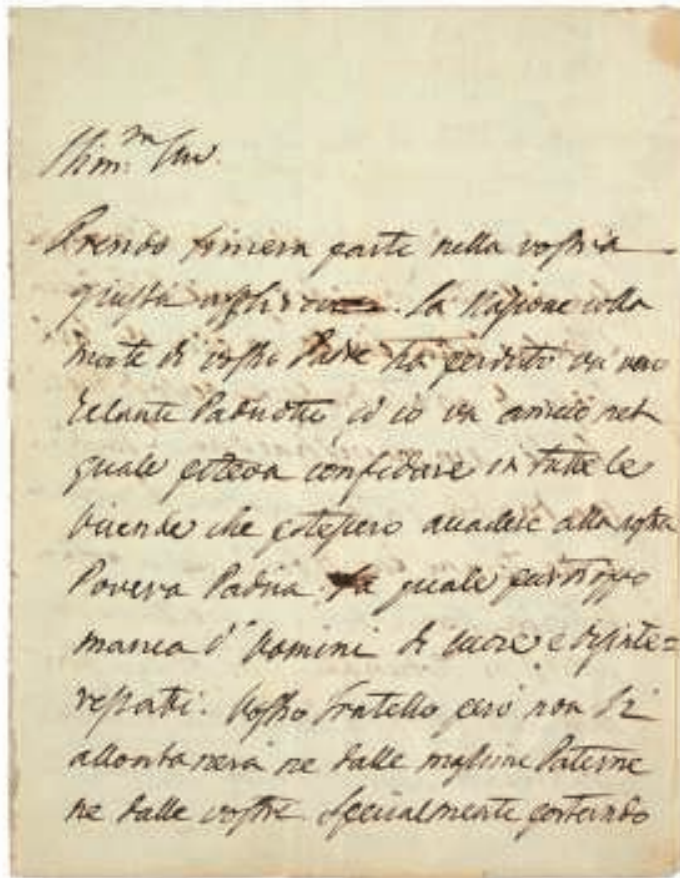 Prendo sincera parte nella vostra
giusta afflizione. La Nazione colla
morte di vostro Padre ha perduto un vero
zelante Patriotta ed io un amico nel
quale poteva confidare in tutte le
vicende che potessero accadere alla nostra
Povera Patria. La quale purtroppo
manca d'Uomini di cuore e disinte=
ressati. Vostro fratello però non si
allontanerà ne dalle massime Paterne
ne dalle vostre. Specialmente